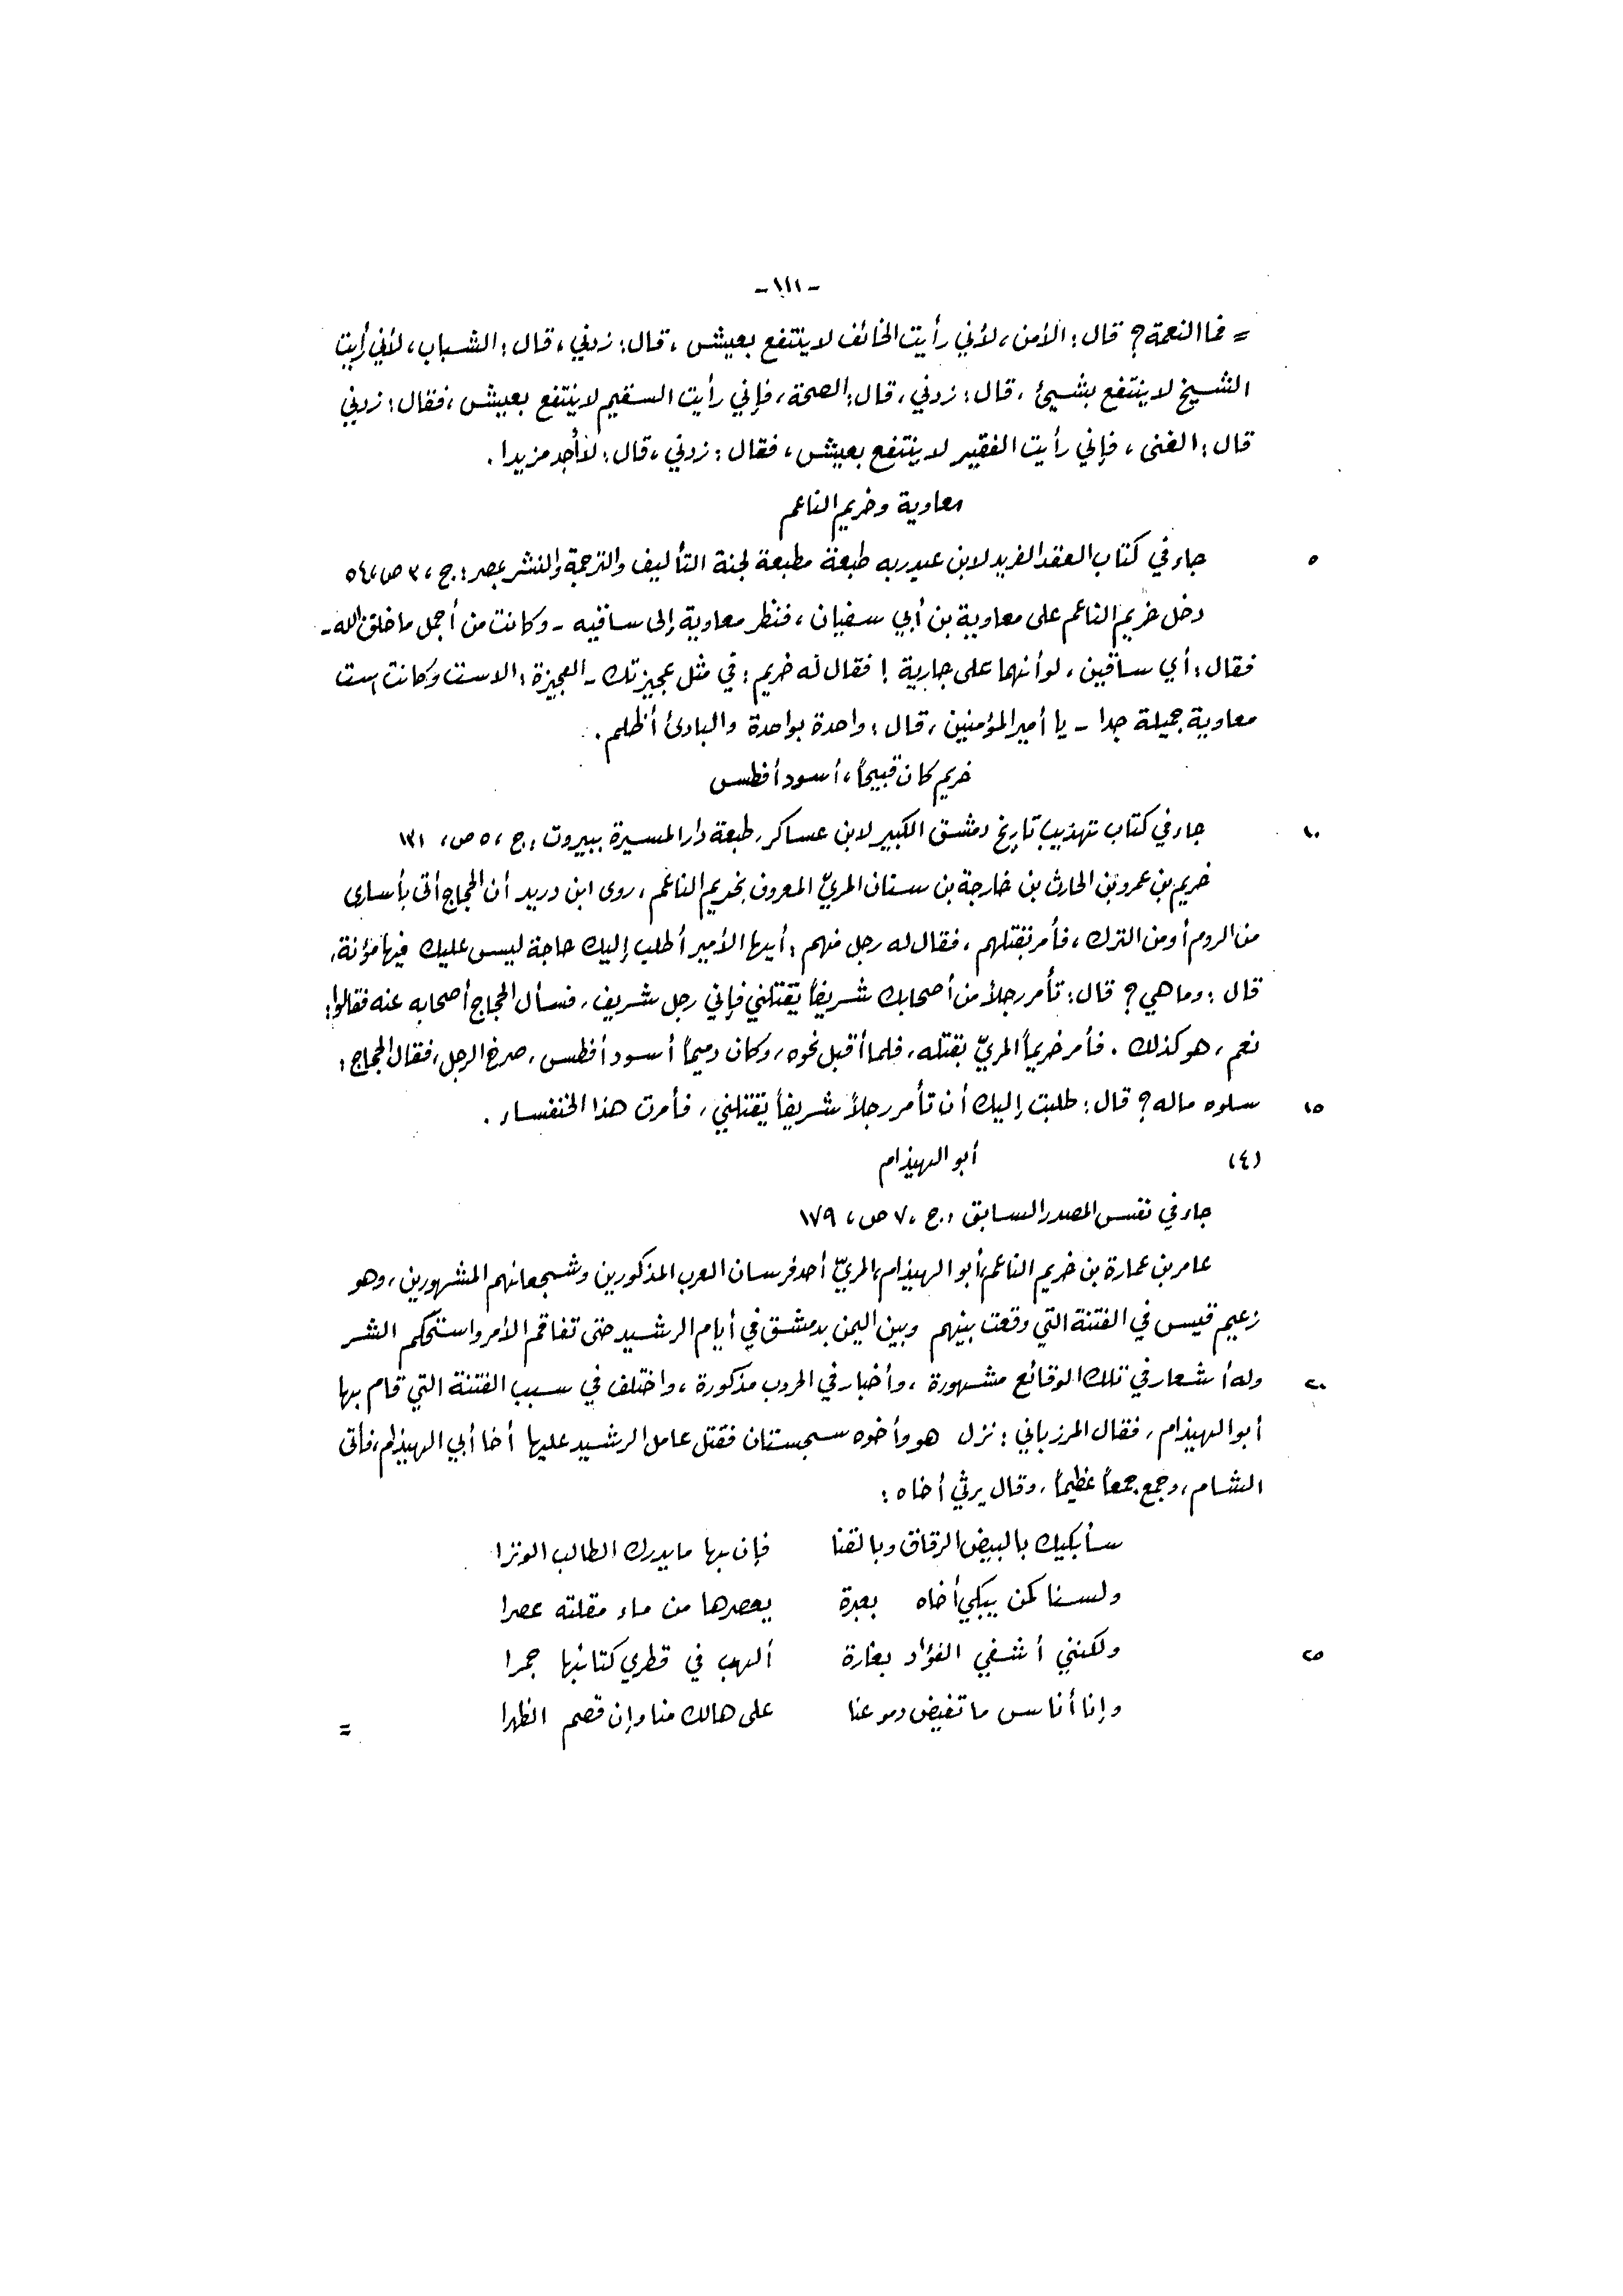 -١١١-
= فما النعمة؟ قال: الأمن، لأني رأيت الخائف لاينتفع بعيش، قال: زدني، قال: الشباب، لأني رأيت
الشيخ لاينتفع بشيئ، قال: زدني، قال: الصحة، فإني رأيت السقيم لاينتفع بعيش، فقال: زدني
قال: الغنى، فإني رأيت الفقير لاينتفع بعيش، فقال: زدني، قال: لاأجد مزيدا.
معاوية وخريم الناعم
٥ جاء في كتاب العقد الفريد لابن عبدربه طبعة مطبعة لجنة التأليف والترجمة والنشر بمصر: ج، ٣ ص، ٥٤
دخل خريم الناعم على معاوية بن أبي سفيان، فنظر معاوية إلى ساقيه - وكانت من أجمل ماخلق الله -
فقال: أي ساقين، لو أنهما على جارية! فقال له خريم: في مثل عجيزتك - العجيزة: الاست وكانت است
معاوية جميلة جدا - يا أمير المؤمنين، قال: واحدة بواحدة والبادئ أظلم.
خريم كان قبيحاً، أسود أفطس
١٠ جاء في كتاب تهذيب تاريخ دمشق الكبير لابن عساكر، طبعة دار المسيرة ببيروت: ج، ٥ ص، ١٣١
خريم بن عمرو بن الحارث بن خارجة بن سنان المريّ المعروف بخريم الناعم، روى ابن دريد أن الحجاج أتى بأسارى
من الروم أو من الترك، فأمر بقتلهم، فقال له رجل منهم: أيها الأمير أطلب إليك حاجة ليس عليك فيها مؤنة،
قال: وماهي؟ قال: تأمر رجلاً من أصحابك شريفاً يقتلني فإني رجل شريف، فسأل الحجاج أصحابه عنه فقالوا:
نعم، هو كذلك. فأمر خريماً المريّ بقتله، فلما أقبل نحوه، وكان دميماً أسود أفطس، صرخ الرجل، فقال الحجاج:
١٥ سلوه ماله؟ قال: طلبت إليك أن تأمر رجلاً شريفاً يقتلني، فأمرت هذا الخنفساء.
(٤) أبو الهيذام
جاء في نفس المصدر السابق: ج، ٧ ص، ١٧٩
عامر بن عمارة بن خريم الناعم، أبو الهيذام، المريّ أحد فرسان العرب المذكورين وشجعانهم المشهورين، وهو
زعيم قيس في الفتنة التي وقعت بينهم وبين اليمن بدمشق في أيام الرشيد حتى تفاقم الأمر واستحكم الشر
٢٠ وله أشعار في تلك الوقائع مشهورة، وأخبار في الحروب مذكورة، واختلف في سبب الفتنة التي قام بها
أبو الهيذام، فقال المرزباني: نزل هو وأخوه سجستان فقتل عامل الرشيد عليها أخا أبي الهيذام، فأتى
الشام، وجمع جمعاً عظيماً، وقال يرثي أخاه:
سأبكيك بالبيض الرقاق وبالقنا فإن بها مايدرك الطالب الوترا
ولسنا كمن يبكي أخاه بعبرة يعصرها من ماء مقلته عصرا
٢٥ ولكنني أشفي الفؤاد بغارة ألهب في قطري كتائبها جمرا
وإنا أناس ماتفيض دموعنا على هالك منا وإن قصم الظهرا =